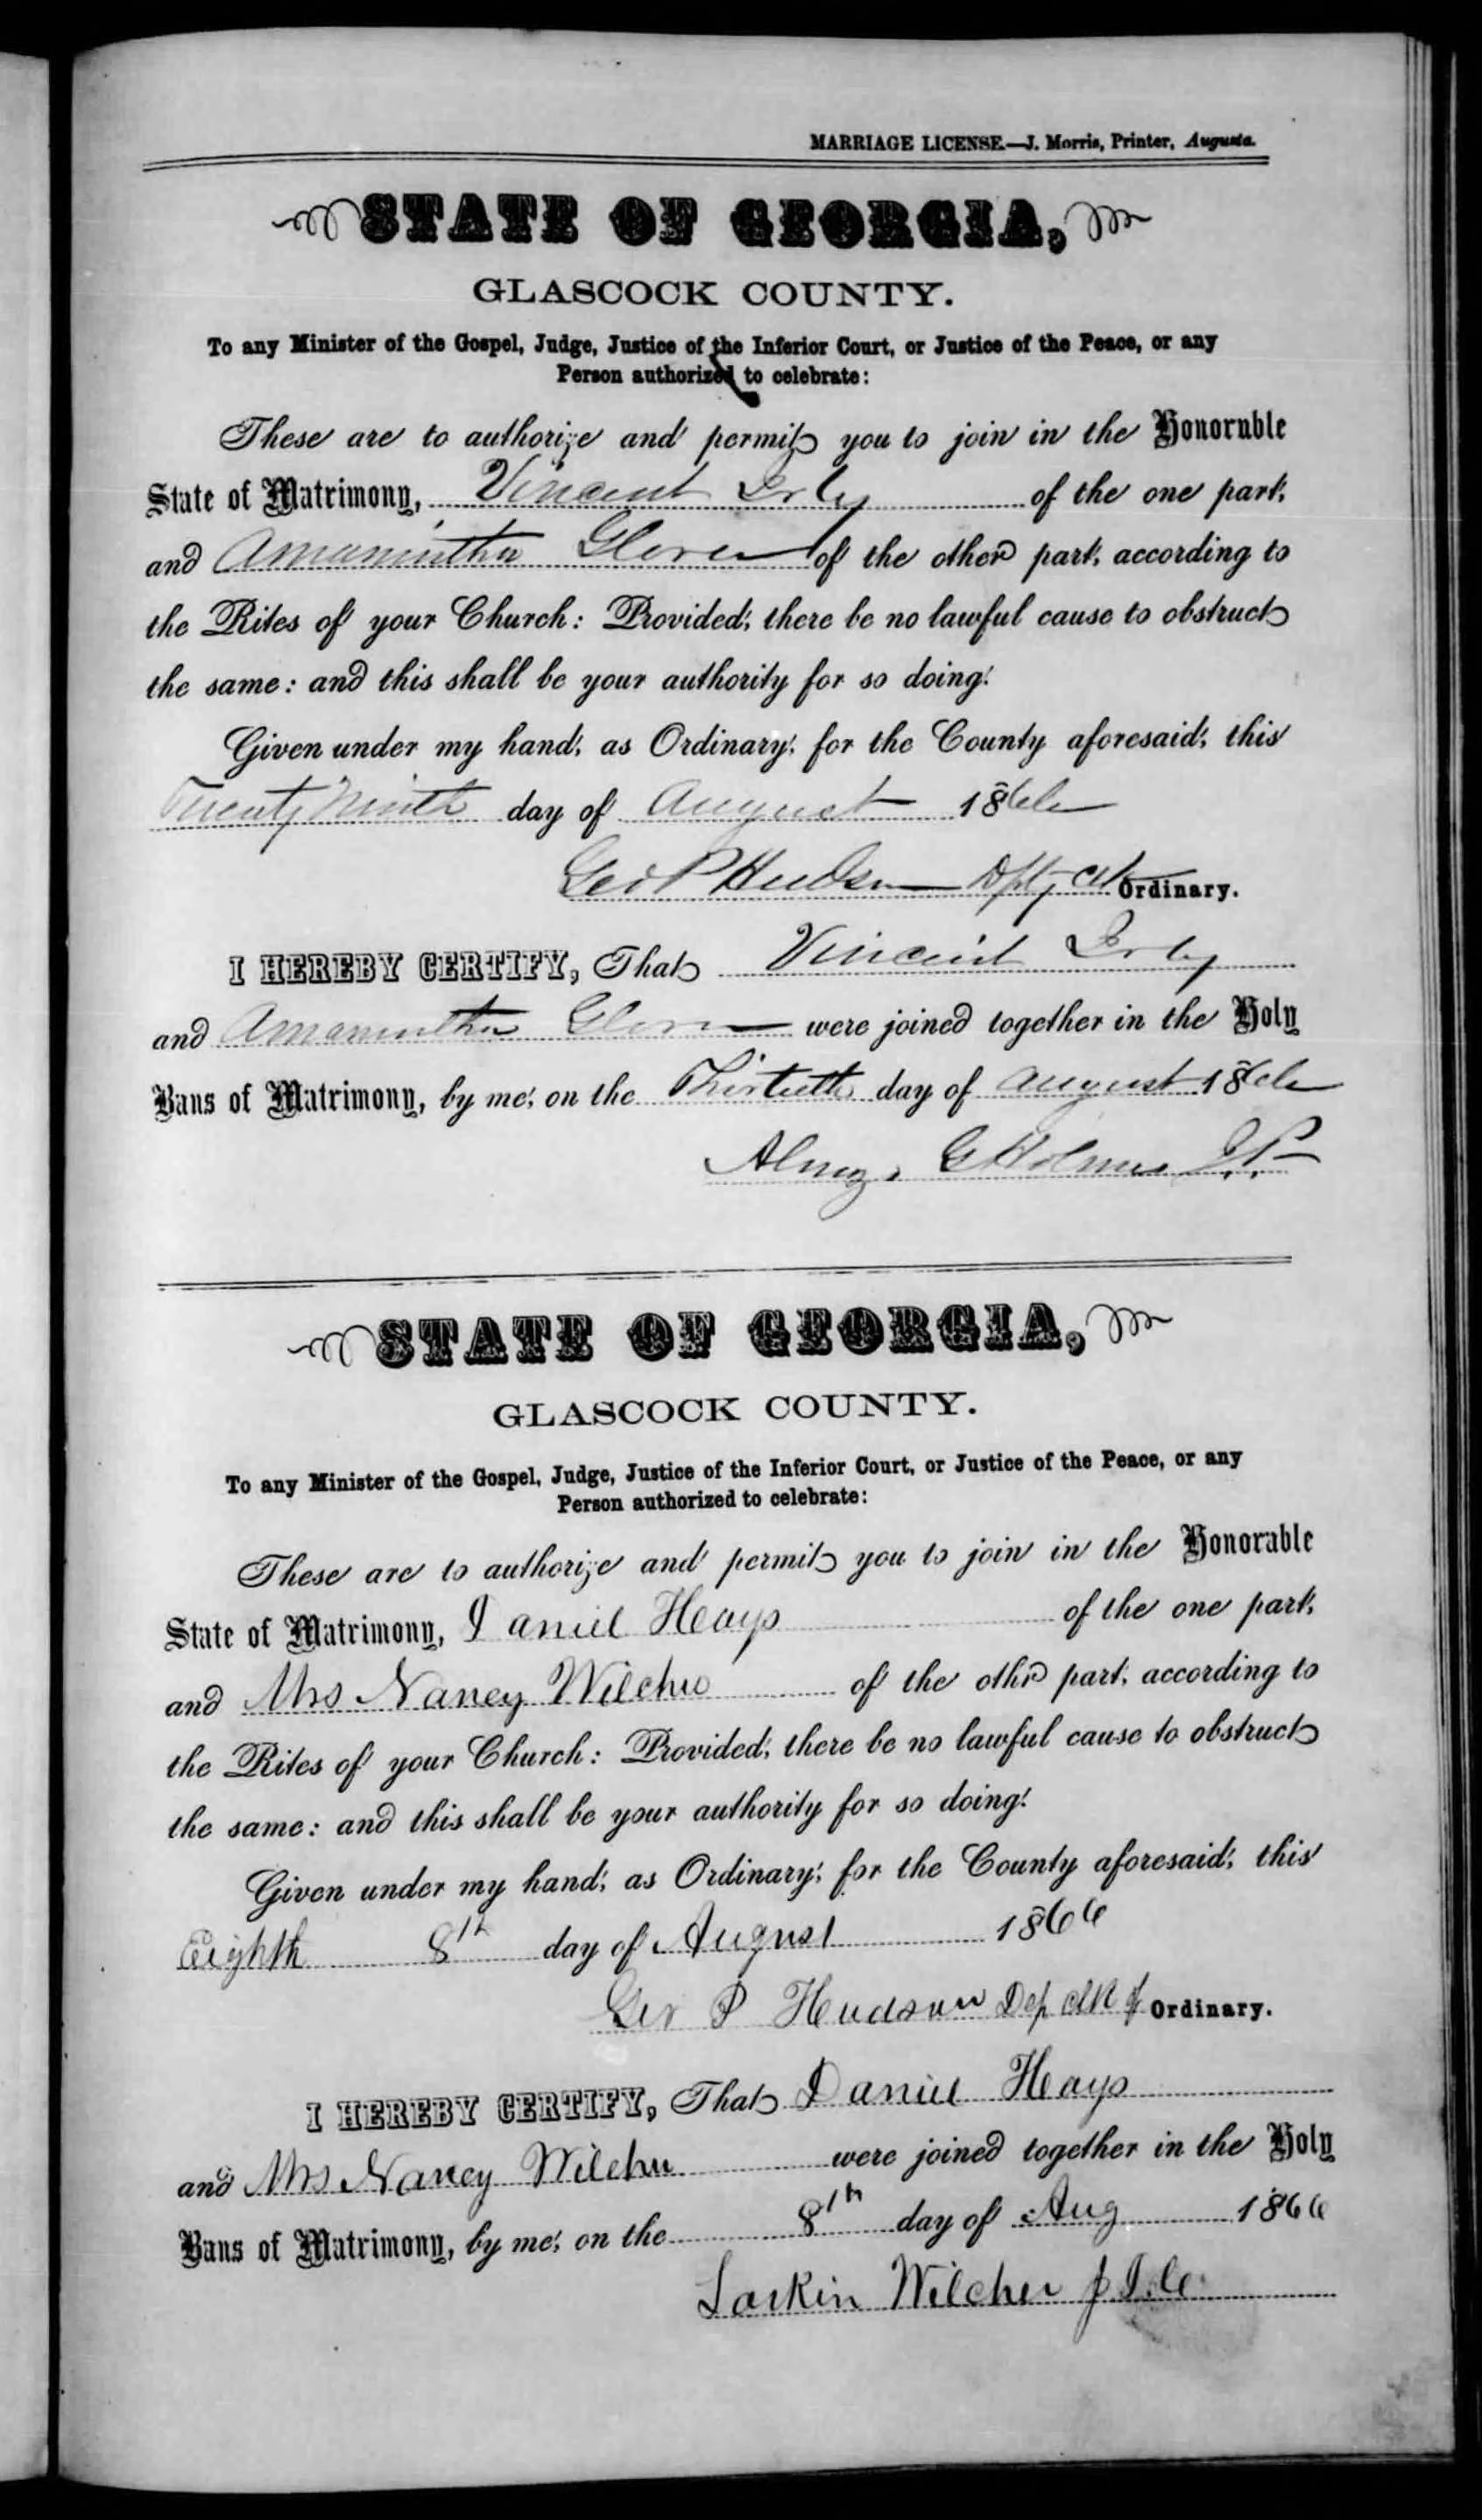 MARRIAGE LICENSE.—J. Morris, Printer, Augusta.
STATE OF GEORGIA,
GLASCOCK COUNTY.
To any Minister of the Gospel, Judge, Justice of the Inferior Court, or Justice of the Peace, or any
Person authorized to celebrate:
These are to authorize and permit you to join in the Honorable
State of Matrimony, Vincent Irby of the one part,
and Amamintha Glover of the other part, according to
the Rites of your Church: Provided, there be no lawful cause to obstruct
the same: and this shall be your authority for so doing.
Given under my hand, as Ordinary, for the County aforesaid, this
Twenty Ninth day of August 1866
Geo P Hudson Dpty Clk Ordinary.
I HEREBY CERTIFY, That Vincent Irby
and Amamintha Glover were joined together in the Holy
Bans of Matrimony, by me, on the Thirtieth day of August 1866
G Holmes J.P.
STATE OF GEORGIA,
GLASCOCK COUNTY.
To any Minister of the Gospel, Judge, Justice of the Inferior Court, or Justice of the Peace, or any
Person authorized to celebrate:
These are to authorize and permit you to join in the Honorable
State of Matrimony, Daniel Heays of the one part,
and Mrs Nancy Wilcher of the othr part, according to
the Rites of your Church: Provided, there be no lawful cause to obstruct
the same: and this shall be your authority for so doing.
Given under my hand, as Ordinary, for the County aforesaid, this
Eighth 8th day of August 1866
Geo P Hudson Dep Clk of Ordinary.
I HEREBY CERTIFY, That Daniel Heays
and Mrs Nancy Wilcher were joined together in the Holy
Bans of Matrimony, by me, on the 8th day of Aug 1866
Larkin Wilcher J.I.C.